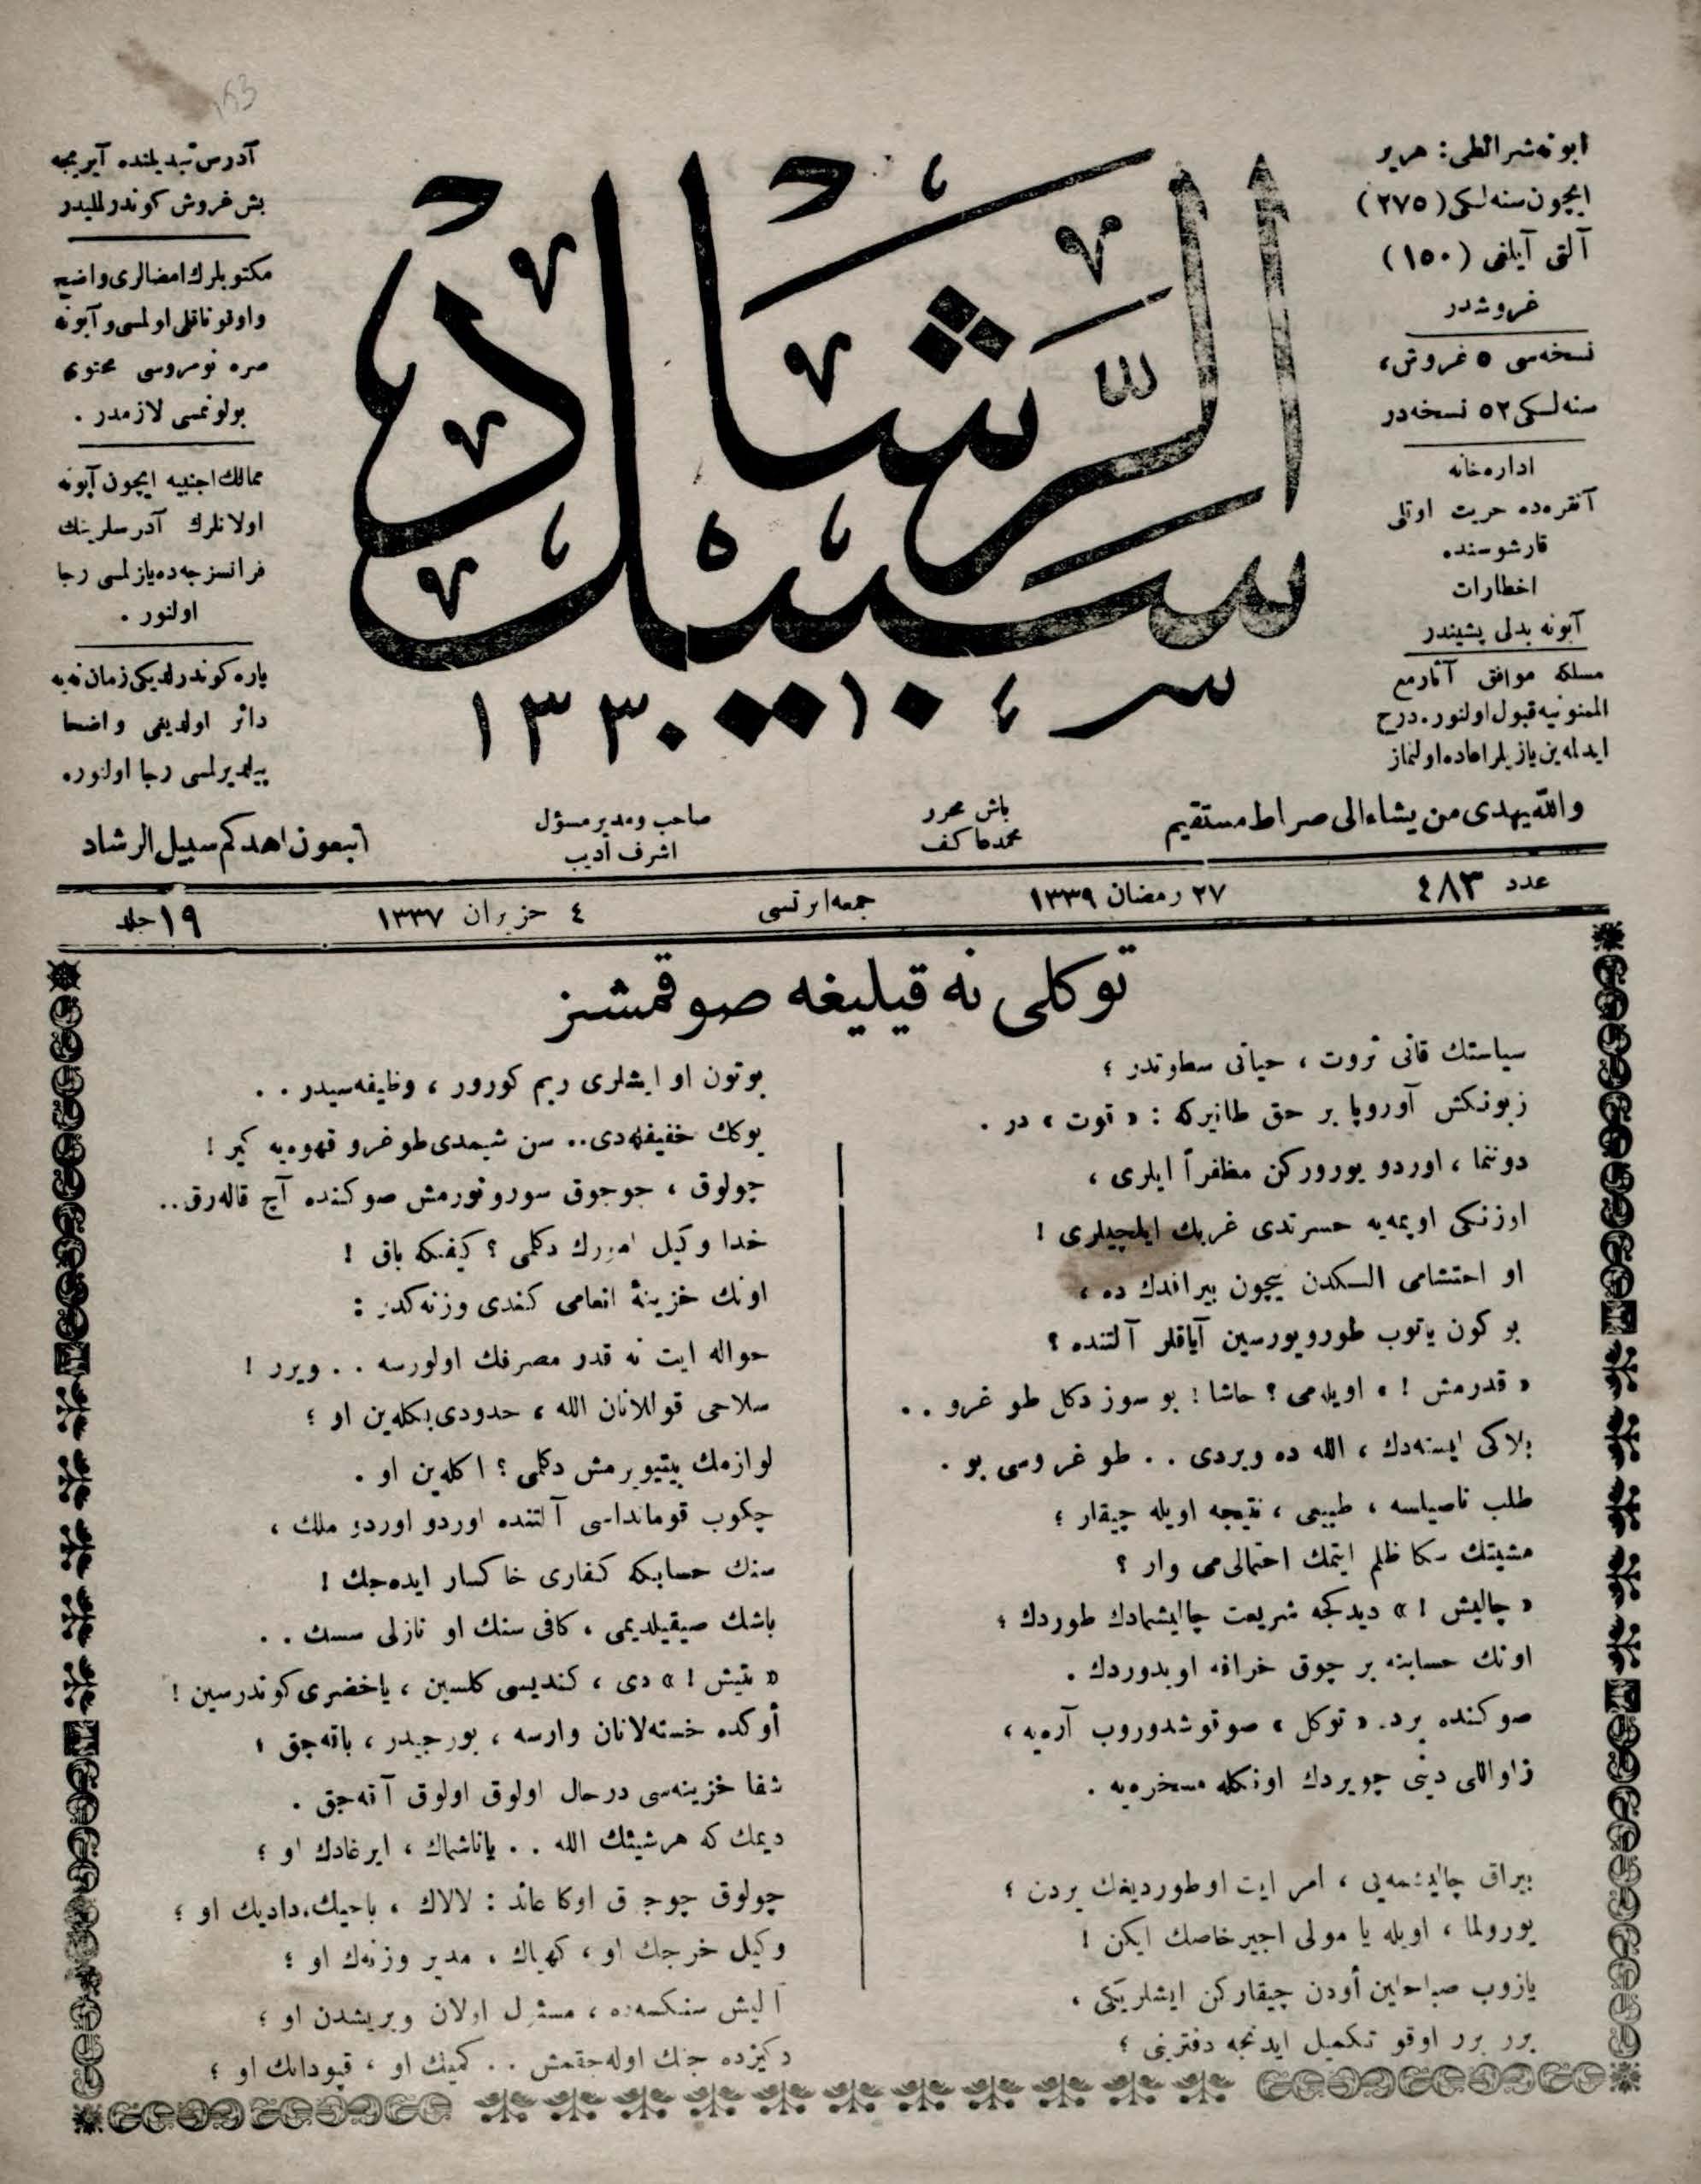 ابونه شرائطی : هر یر
ایچون سنه‌لكی (۲۷۵)
آلتی آیلغی (۱۵۰)
غروشدر
نسخه‌سی ۵ غروش،
سنه‌لكی ۵۲ نسخه‌در
اداره‌خانه
آنقره‌ده حریت اوتلی
قارشوسنده
اخطارات
آبونه بدلی پشیندر
مسلكه موافق آثار مع
الممنونیه قبول اولنور . درج
ایدلمه‌ین یازیلر اعاده اولنماز
سبیل الرشاد
۱۳۳۰
آدرس تبدیلنده آیریجه
بش غروش كوندرلملیدر
مكتوبلرك امضالری واضح
واوقوناقلی اولمسی و آبونه
صره نومروسی محتوی
بولونمسی لازمدر .
ممالك اجنبیه ایچون آبونه
اولانلرك آدرسلرینك
فرانسزجه‌ده یازلمسی رجا
اولنور .
پاره كوندرلدیكی زمان نه‌یه
دائر اولدیغی واضحا
بیلدیرلمسی رجا اولنور.
والله یهدی من یشاء الی صراط مستقیم
باش محرر
محمد عاكف
صاحب و مدیر مسؤل
اشرف ادیب
اتبعون اهدكم سبیل الرشاد
عدد ٤٨٣
۲۷ رمضان ۱۳۳۹
جمعه ایرتسی
٤ حزیران ۱۳۳۷
جلد ۱۹
توكلی نه قیلیغه صوقمشز
سیاستك قانی ثروت ، حیاتی سطوتدر ؛
زبونكش آوروپا بر حق طانیركه : « قوت » در .
دوننما ، اوردو یوروركن مظفراً ایلری ،
اوزنكی اوپمه‌یه حسرتدی غربك ایلچیلری !
او احتشامی الكدن نیچون بیراقدك ده ،
بو كون یاتوب طورویورسین آیاقلر آلتنده ؟
« قدرمش ! » اویله‌می ؟ حاشا ! بو سوز دكل طوغرو . .
بلاكی ایسته‌دك ، الله ده ویردی . . طوغروسی بو .
طلب ناصیلسه ، طبیعی ، نتیجه اویله چیقار ؛
مشیتك سكا ظلم ایتمك احتمالی‌می وار ؟
« چالیش ! » دیدكجه شریعت چالیشمادك طوردك ؛
اونك حسابنه بر چوق خرافه اویدوردك .
صوكنده برده « توكل » صوقوشدوروب آره‌یه ،
زواللی دینی چویردك اونكله مسخره‌یه .
بیراق چالیشمه‌یی ، امر ایت اوطوردیغك یردن ؛
یورولما ، اویله یا مولی اجیر خاصك ایكن !
یازوب صباحلین أودن چیقاركن ایشلریكی ،
برر برر اوقو تكمیل ایدنجه دفترینی ؛
بوتون او ایشلری ربم كورور ، وظیفه‌سیدر . .
یوكك خفیفله‌دی.. سن شیمدی طوغرو قهوه‌یه كیر !
چولوق ، چوجوق سورونورمش صوكنده آچ قاله‌رق..
خدا وكیل امورك دكلمی ؟ كیفكه باق !
اونك خزینۀ انعامی كندی وزنه‌كدر :
حواله ایت نه قدر مصرفك اولورسه . . ویرر !
سلاحی قوللانان الله ، حدودی بكله‌ین او ؛
لوازمك بیتیویرمش دكلمی ؟ اكله‌ین او .
چكوب قومانداسی آلتنده اوردو اوردو ملك ،
سنك حسابكه كفاری خاكسار ایده‌جك !
باشك صیقیلدیمی ، كافی سنك او نازلی سسك . .
« یتیش ! » دی ، كندیسی كلسین ، یاخضری كوندرسین !
أوكده خسته‌لانان وارسه ، بورجیدر ، باقه‌جق ؛
شفا خزینه‌سی درحال اولوق اولوق آقه‌جق .
دیمك كه هر شیئك الله . . یاناشماك ، ایرغادك او ؛
چولوق چوجوق اوكا عائد : لالاك ، باجیك، دادیك او ؛
وكیل خرجك او ، كهیاك ، مدیر وزنه‌ك او ؛
آلیش سنكسه‌ده ، مسئول اولان ویریشدن او ؛
دكیزده جنك اوله‌جقمش . . كمینك او ، قپودانك او ؛